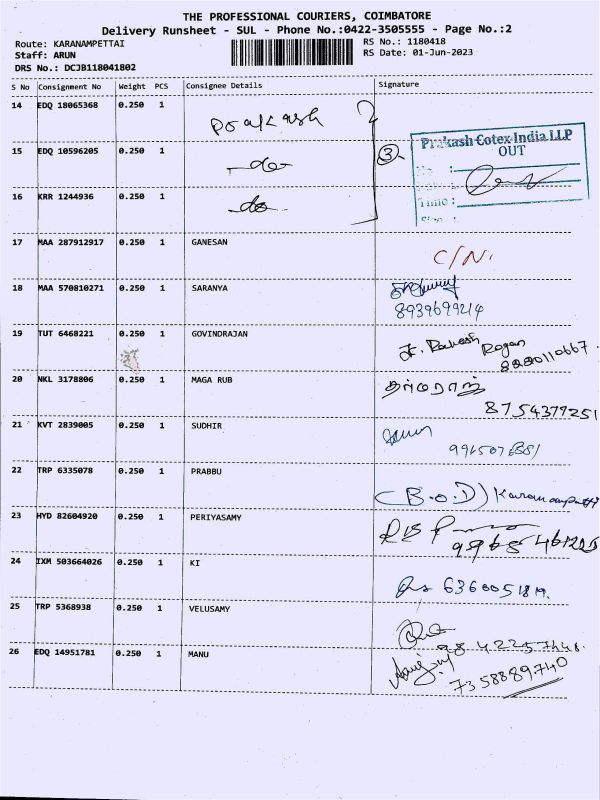 THE PROFESSIONAL COURIERS, COIMBATORE
Delivery Runsheet - SUL - Phone No.:0422-3505555 - Page No.:2
Route: KARANAMPETTAI RS No.: 1180418
Staff: ARUN RS Date: 01-Jun-2023
DRS No.: DCJB118041802
S No Consignment No Weight PCS Consignee Details Signature
14 EDQ 18065368 0.250 1 Prakash
Prakash Cotex India LLP
OUT
15 EDQ 10596205 0.250 1 -do- 3
16 KRR 1244936 0.250 1 -do-
Time :
17 MAA 287912917 0.250 1 GANESAN C/N.
18 MAA 570810271 0.250 1 SARANYA
8939699214
19 TUT 6468221 0.250 1 GOVINDRAJAN
20 NKL 3178806 0.250 1 MAGA RUB
8754377251
21 KVT 2839005 0.250 1 SUDHIR
22 TRP 6335078 0.250 1 PRABBU
(B.O.D) Karanampatti
23 HYD 82604920 0.250 1 PERIYASAMY
24 IXM 503664026 0.250 1 KI
25 TRP 5368938 0.250 1 VELUSAMY
26 EDQ 14951781 0.250 1 MANU
7358889740